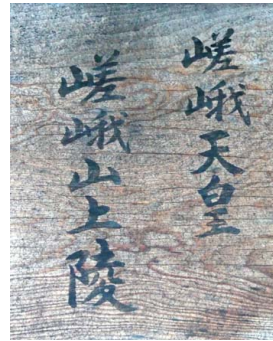 嵯峨天皇
嵯峨山上陵